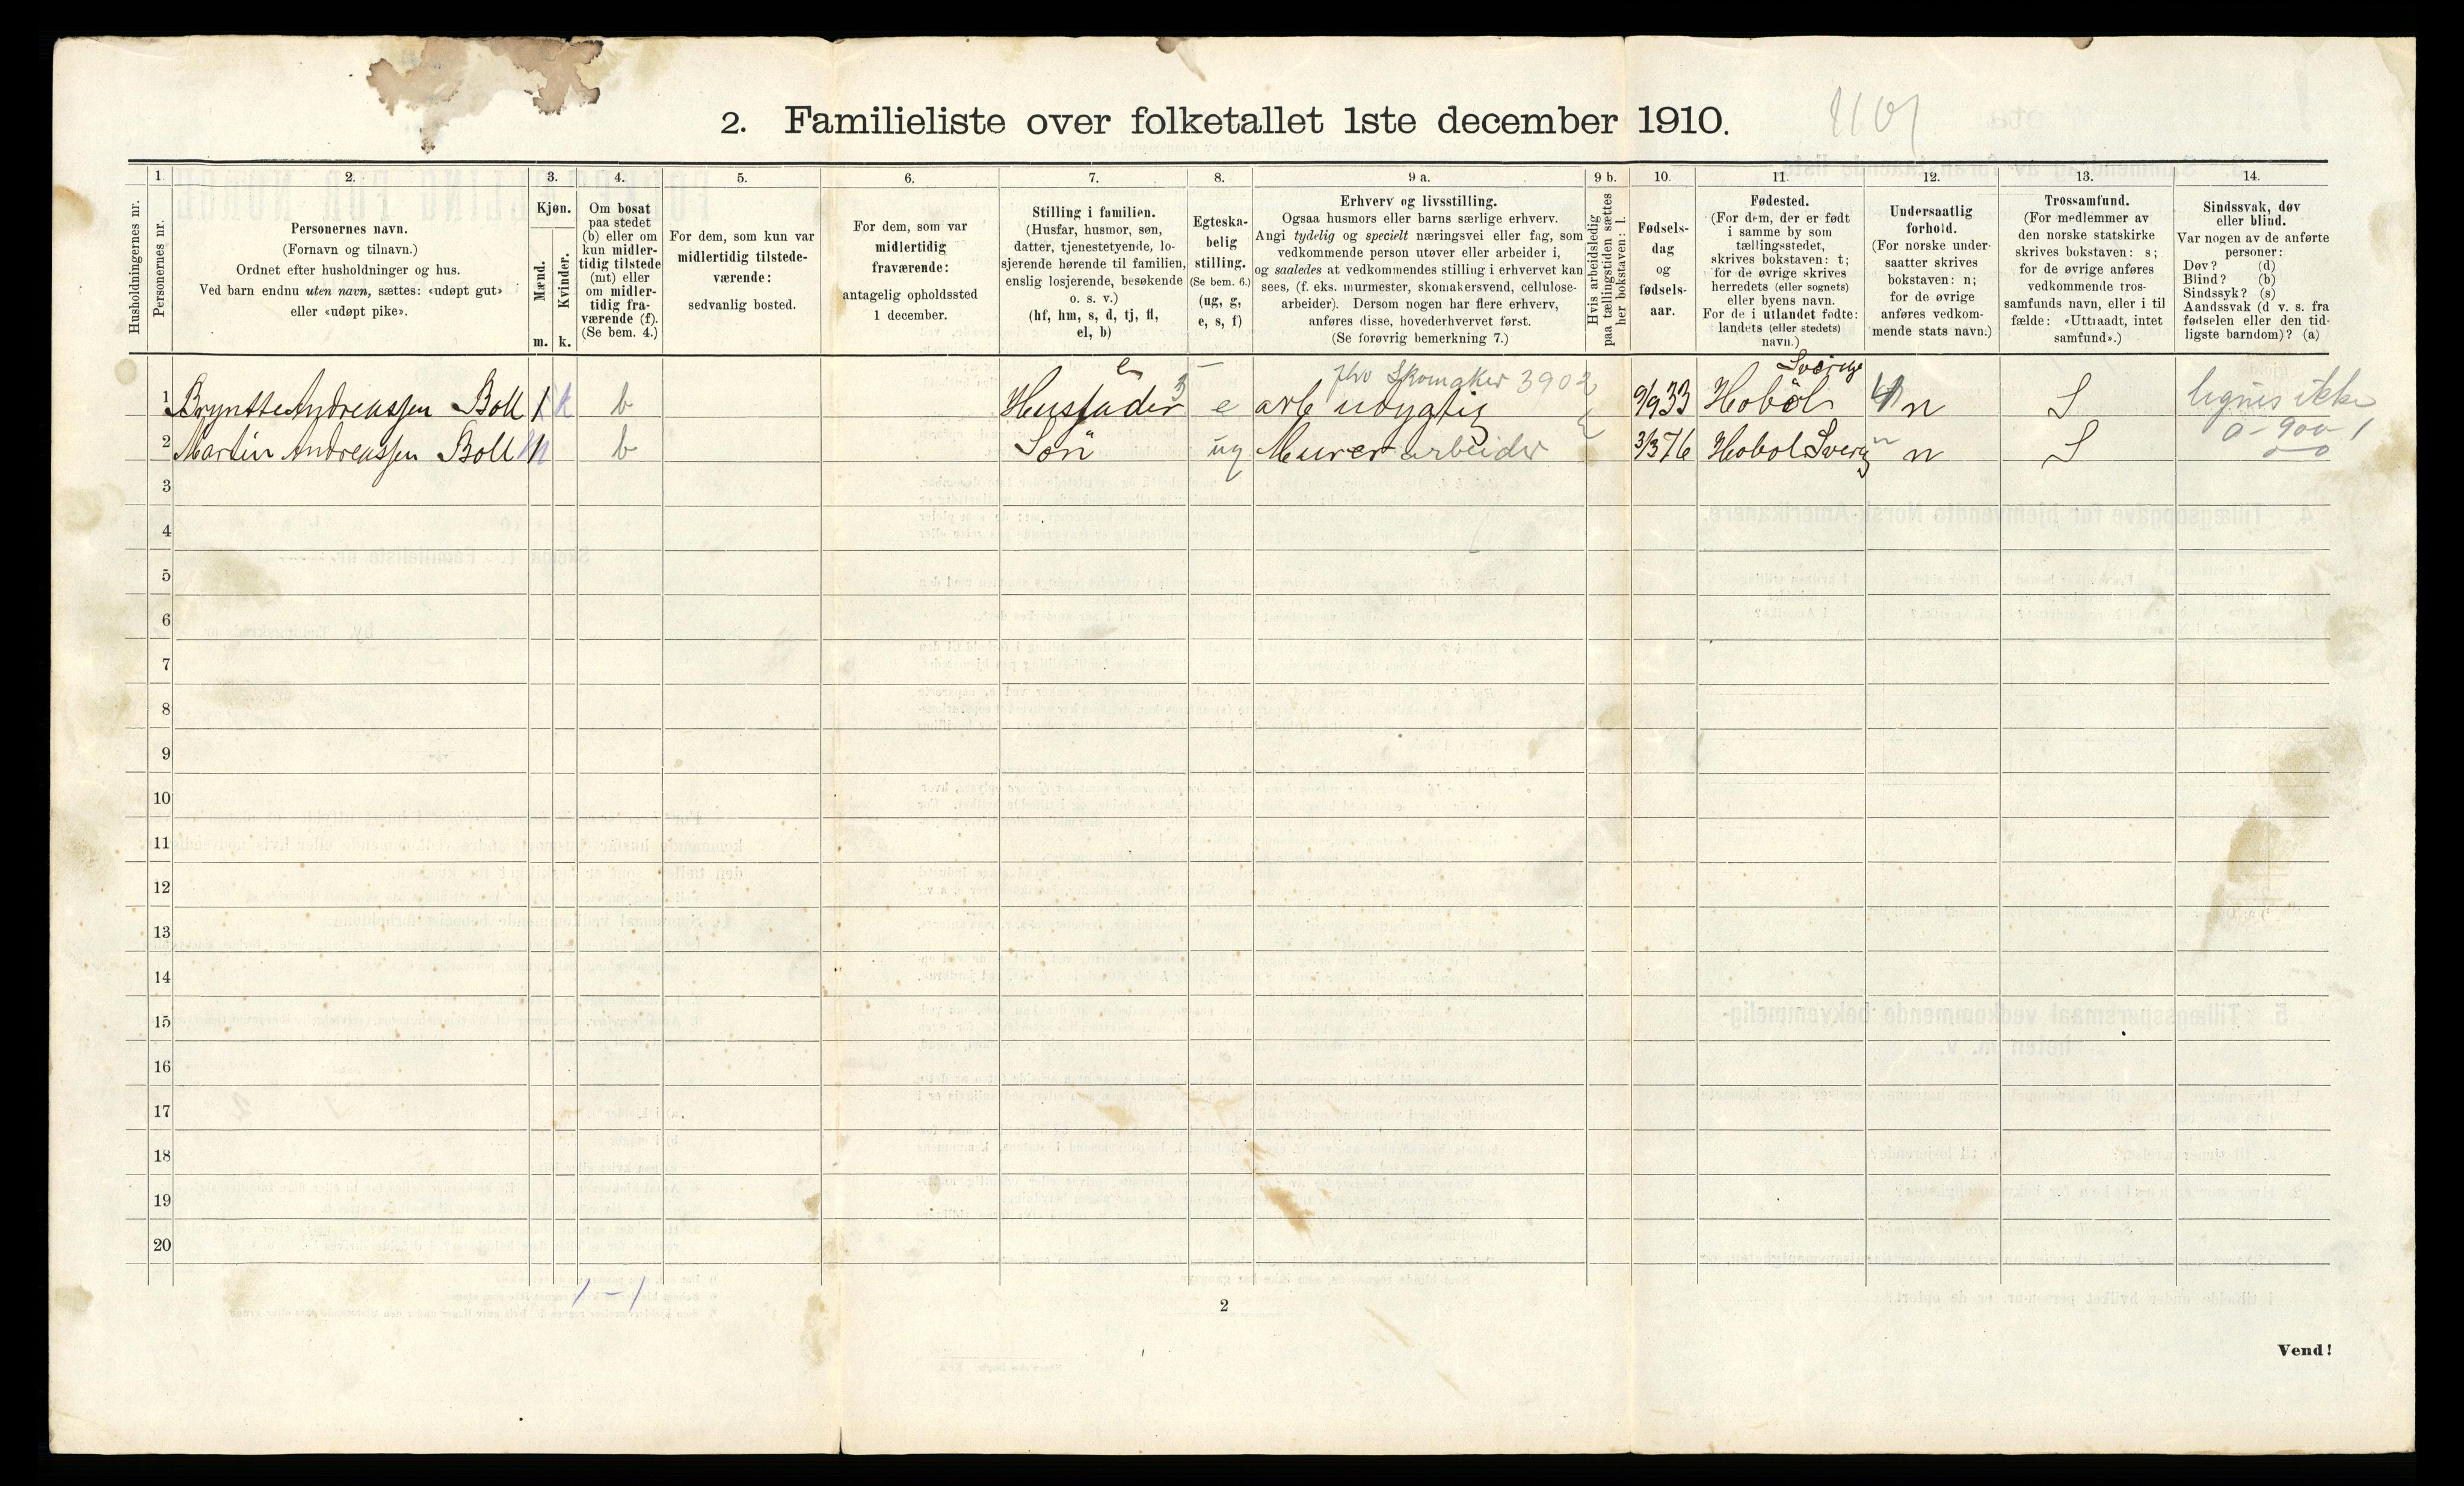 2. Familieliste over folketallet 1ste december 1910.
1. 2. 3. 4. 5. 6. 7. 8. 9 a. 9 b. 10. 11. 12. 13. 14.
Husholdningernes nr.
Personernes nr.
Personernes navn.
(Fornavn og tilnavn.)
Ordnet efter husholdninger og hus.
Ved barn endnu uten navn, sættes: «udøpt gut»
eller «udøpt pike».
Kjøn.
Mænd.
m.
Kvinder.
k.
Om bosat
paa stedet
(b) eller om
kun midler-
tidig tilstede
(mt) eller
om midler-
tidig fra-
værende (f).
(Se bem. 4.)
For dem, som kun var
midlertidig tilstede-
værende:
sedvanlig bosted.
For dem, som var
midlertidig
fraværende:
antagelig opholdssted
1 december.
Stilling i familien.
(Husfar, husmor, søn,
datter, tjenestetyende, lo-
sjerende hørende til familien,
enslig losjerende, besøkende
o. s. v.)
(hf, hm, s, d, tj, fl,
el, b)
Egteska-
belig
stilling.
(Se bem. 6.)
(ug, g,
e, s, f)
Erhverv og livsstilling.
Ogsaa husmors eller barns særlige erhverv.
Angi tydelig og specielt næringsvei eller fag, som
vedkommende person utøver eller arbeider i,
og saaledes at vedkommendes stilling i erhvervet kan
sees, (f. eks. murmester, skomakersvend, cellulose-
arbeider). Dersom nogen har flere erhverv,
anføres disse, hovederhvervet først.
(Se forøvrig bemerkning 7.)
Hvis arbeidsledig
paa tællingstiden sættes
her bokstaven: l.
Fødsels-
dag
og
fødsels-
aar.
Fødested.
(For dem, der er født
i samme by som
tællingsstedet,
skrives bokstaven: t;
for de øvrige skrives
herredets (eller sognets)
eller byens navn.
For de i utlandet fødte:
landets (eller stedets)
navn.)
Undersaatlig
forhold.
(For norske under-
saatter skrives
bokstaven: n;
for de øvrige
anføres vedkom-
mende stats navn.)
Trossamfund.
(For medlemmer av
den norske statskirke
skrives bokstaven: s;
for de øvrige anføres
vedkommende tros-
samfunds navn, eller i til
fælde: «Uttraadt, intet
samfund».)
Sindssvak, døv
eller blind.
Var nogen av de anførte
personer:
Døv? (d)
Blind? (b)
Sindssyk? (s)
Aandssvak (d v. s. fra
fødselen eller den tid-
ligste barndom)? (a)
1 Andreassen Boll 1 k b e arb udygtig 9/9 33 Hoböl Sverige n S
fhv Skomaker 3902
2 Martin Andreassen Boll 1 b Sön ug Murer arbeider 3/3 76 Hobol Sverig n S
3
4
5
6
7
8
9
10
11
12
13
14
15
16
17
18
19
20
1 - 1
2
Vend!